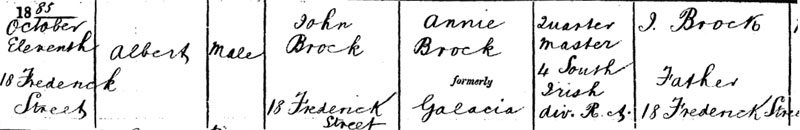 1885
October
Eleventh
18 Frederick
Street
Albert
Male
John
Brock
18 Frederick
Street
Annie
Brock
formerly
Galacia
Quarter
Master
4 South
Irish
div. R.A.
J. Brock
Father
18 Frederick Stree